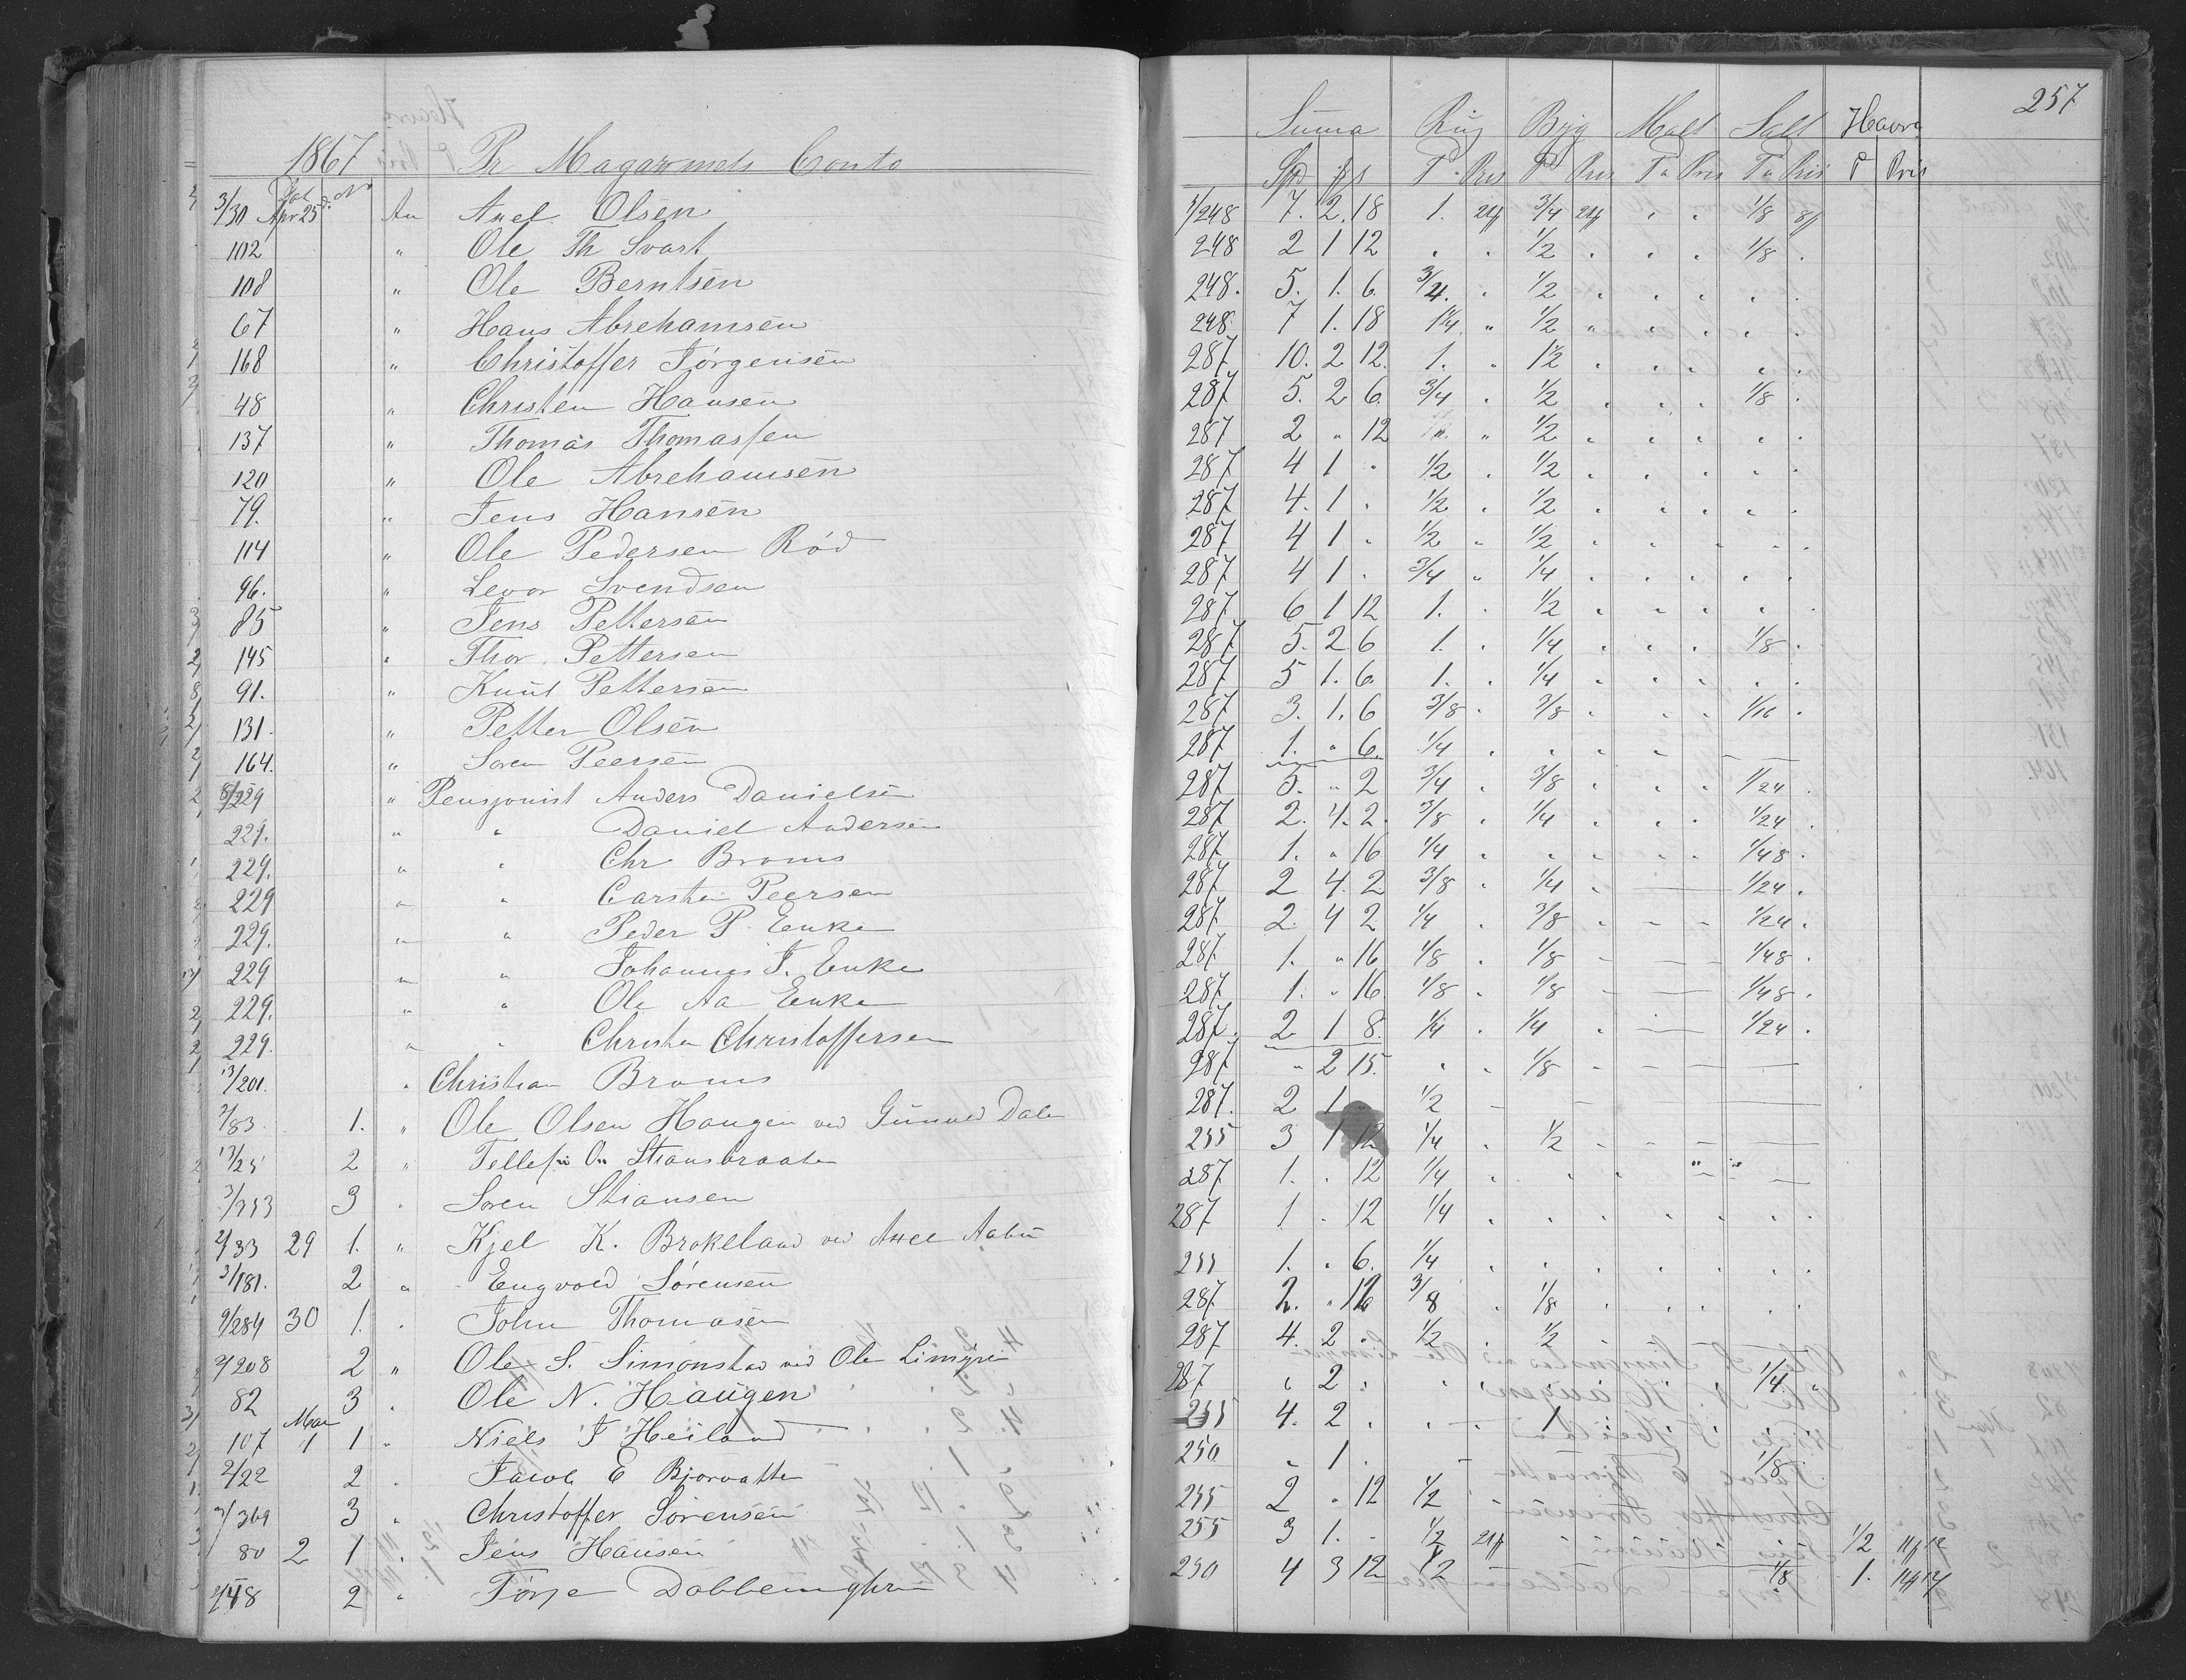 257
1867 Pr Magazinets Conto Summa Rug Byg Malt Salt Havre
Dat No Spd T Pris T Pris T Pris T Pris T Pris
3/30 Apr 25 An Axel Olsen 1/248 7. 2. 18 1. 3/4 1/8
102 " Ole Th Svart 248 2 1 12 " " 1/2 " " " 1/8 "
108 " Ole Berntsen 248. 5. 1. 6. 3/4. " 1/2 " " " " "
67 " Hans Abrehamsen 248. 7 1. 18 1 1/4 " 1/2 " " " " "
168 " Christoffer Jörgensen 287. 10. 2 12. 1. " 1 1/2 " " " " "
48 " Christen Hansen 287 5. 2 6. 3/4 " 1/2 " " " 1/8 "
137 " Thomas Thomassen 287 2 " 12 " 1/2 " " " " "
120 " Ole Abrehamsen 287 4 1 " 1/2 " 1/2 " " " " "
79. " Jens Hansen 287 4. 1 " 1/2 " 1/2 " " " " "
114 " Ole Pedersen Röd 287 4 1 " 1/2 " 1/2 " " " " "
96. " Levor Svendsen 287 4 1 " 3/4 " 1/4 " " " " "
85 " Jens Pettersen 287 6 1 12 1. " 1/2 " " " " "
145 " Thor. Pettersen 287 5. 2 6 1. " 1/4 " " " 1/8 "
91. " Knut Pettersen 287 5 1. 6. 1. " 1/4 " " " " "
131. " Petter Olsen 287 3. 1. 6 3/8 " 3/8 " " " 1/16 "
164. " Soren Peersen 287 1. " 6. 1/4 " " " "
8/229 " Pensjonist Anders Danielsen 287 5. " 2 3/4 " 3/8 " " " 1/24 "
229. " " Daniel Andersen 287 2. 4. 2. 3/8 " 1/4 " " " 1/24 "
229. " " Chr Broms 287 1. " 16 1/4 " " " " " 1/48 "
229 " " Carsten Peersen 287 2 4. 2 3/8 " 1/4 " 1/24 "
229. " " Peder P. Enke 287. 2. 4 2 1/4 " 3/8 " 1/24 "
229 " " Johannes J. Enke 287. 1. " 16 1/8 " 1/8 " 1/48 "
229. " " Ole Aa Enke 287 1. " 16. 1/8 " 1/8 1/48 "
229. " " Christen Christoffersen 287. 2 1 8. 1/4 " 1/4 " 1/24 "
13/201. " Christian Broms 287 " 2 15. " " 1/8 "
2/83 1. " Ole Olsen Haugen ved Gunuld Dale 287. 2 1 1/2
13/25 2 " Tellef Stiansbraaten 255 3 1 12 1/4 " 1/2
3/253 3 " Soren Stiansen 287 1. " 12 1/4 " " "
2/33 29 1. " Kjel K. Brokeland ved Axel Aabu 287 1 " 12 1/4 " " " " " " "
3/181. 2 " Engvold Sörensen 255 1. " 6. 1/4 " " " " " " "
9/284 30 1. " John Thomasen 287 2. " 12 3/8 " 1/8 " " " "
2/208 2 " Ole S. Simonstad ved Ole Limyr 287 4. 2 " 1/2 " 1/2 "
82 3 " Ole N. Haugen 287 " 2 " 1/4 "
107 Mai 1 1 " Niels J Heiland 255 4. 2 " " 1 "
2/22 2 " Jacob E Bjorvatten 250 " 1 " 1/8
2/369 3 " Christoffer Sörensen 255 2 " 12 1/2 "
80 2 1 " Jens Hansen 255 3 1. " 1/2 1/2
2/48 2 " Törje 250 4 3 12 1/2 1/8 1.